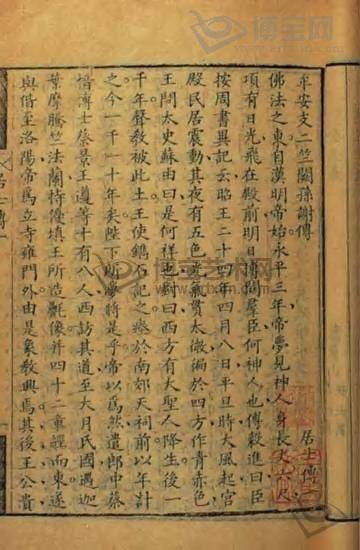 居士傳一
牟安支二竺闕孫謝傳
佛法之東自漢明帝始永平三年帝夢見神人身長丈六尺
項有日光飛在殿前明日問羣臣何神人也傅毅進曰臣
按周書異記云昭王二十四年四月八日平旦時大風起宮
殿民居震動其夜有五色光氣貫太微徧於四方作青赤色
王問太史蘇由曰是何祥也對曰西方有大聖人降生後一
千年聲教被此土王使鐫石記之瘞於南郊天祠前以年計
之今一千一十年矣陛下所夢將是乎帝以爲然遣郎中蔡
愔博士蔡景王遵等十有八人西訪其道至大月氏國遇迦
葉摩騰竺法蘭持優填王所造氎像幷四十二章經而東遂
與偕至洛陽帝爲立寺雍門外由是象教興焉其後王公貴
居士傳一
博宝艺术网